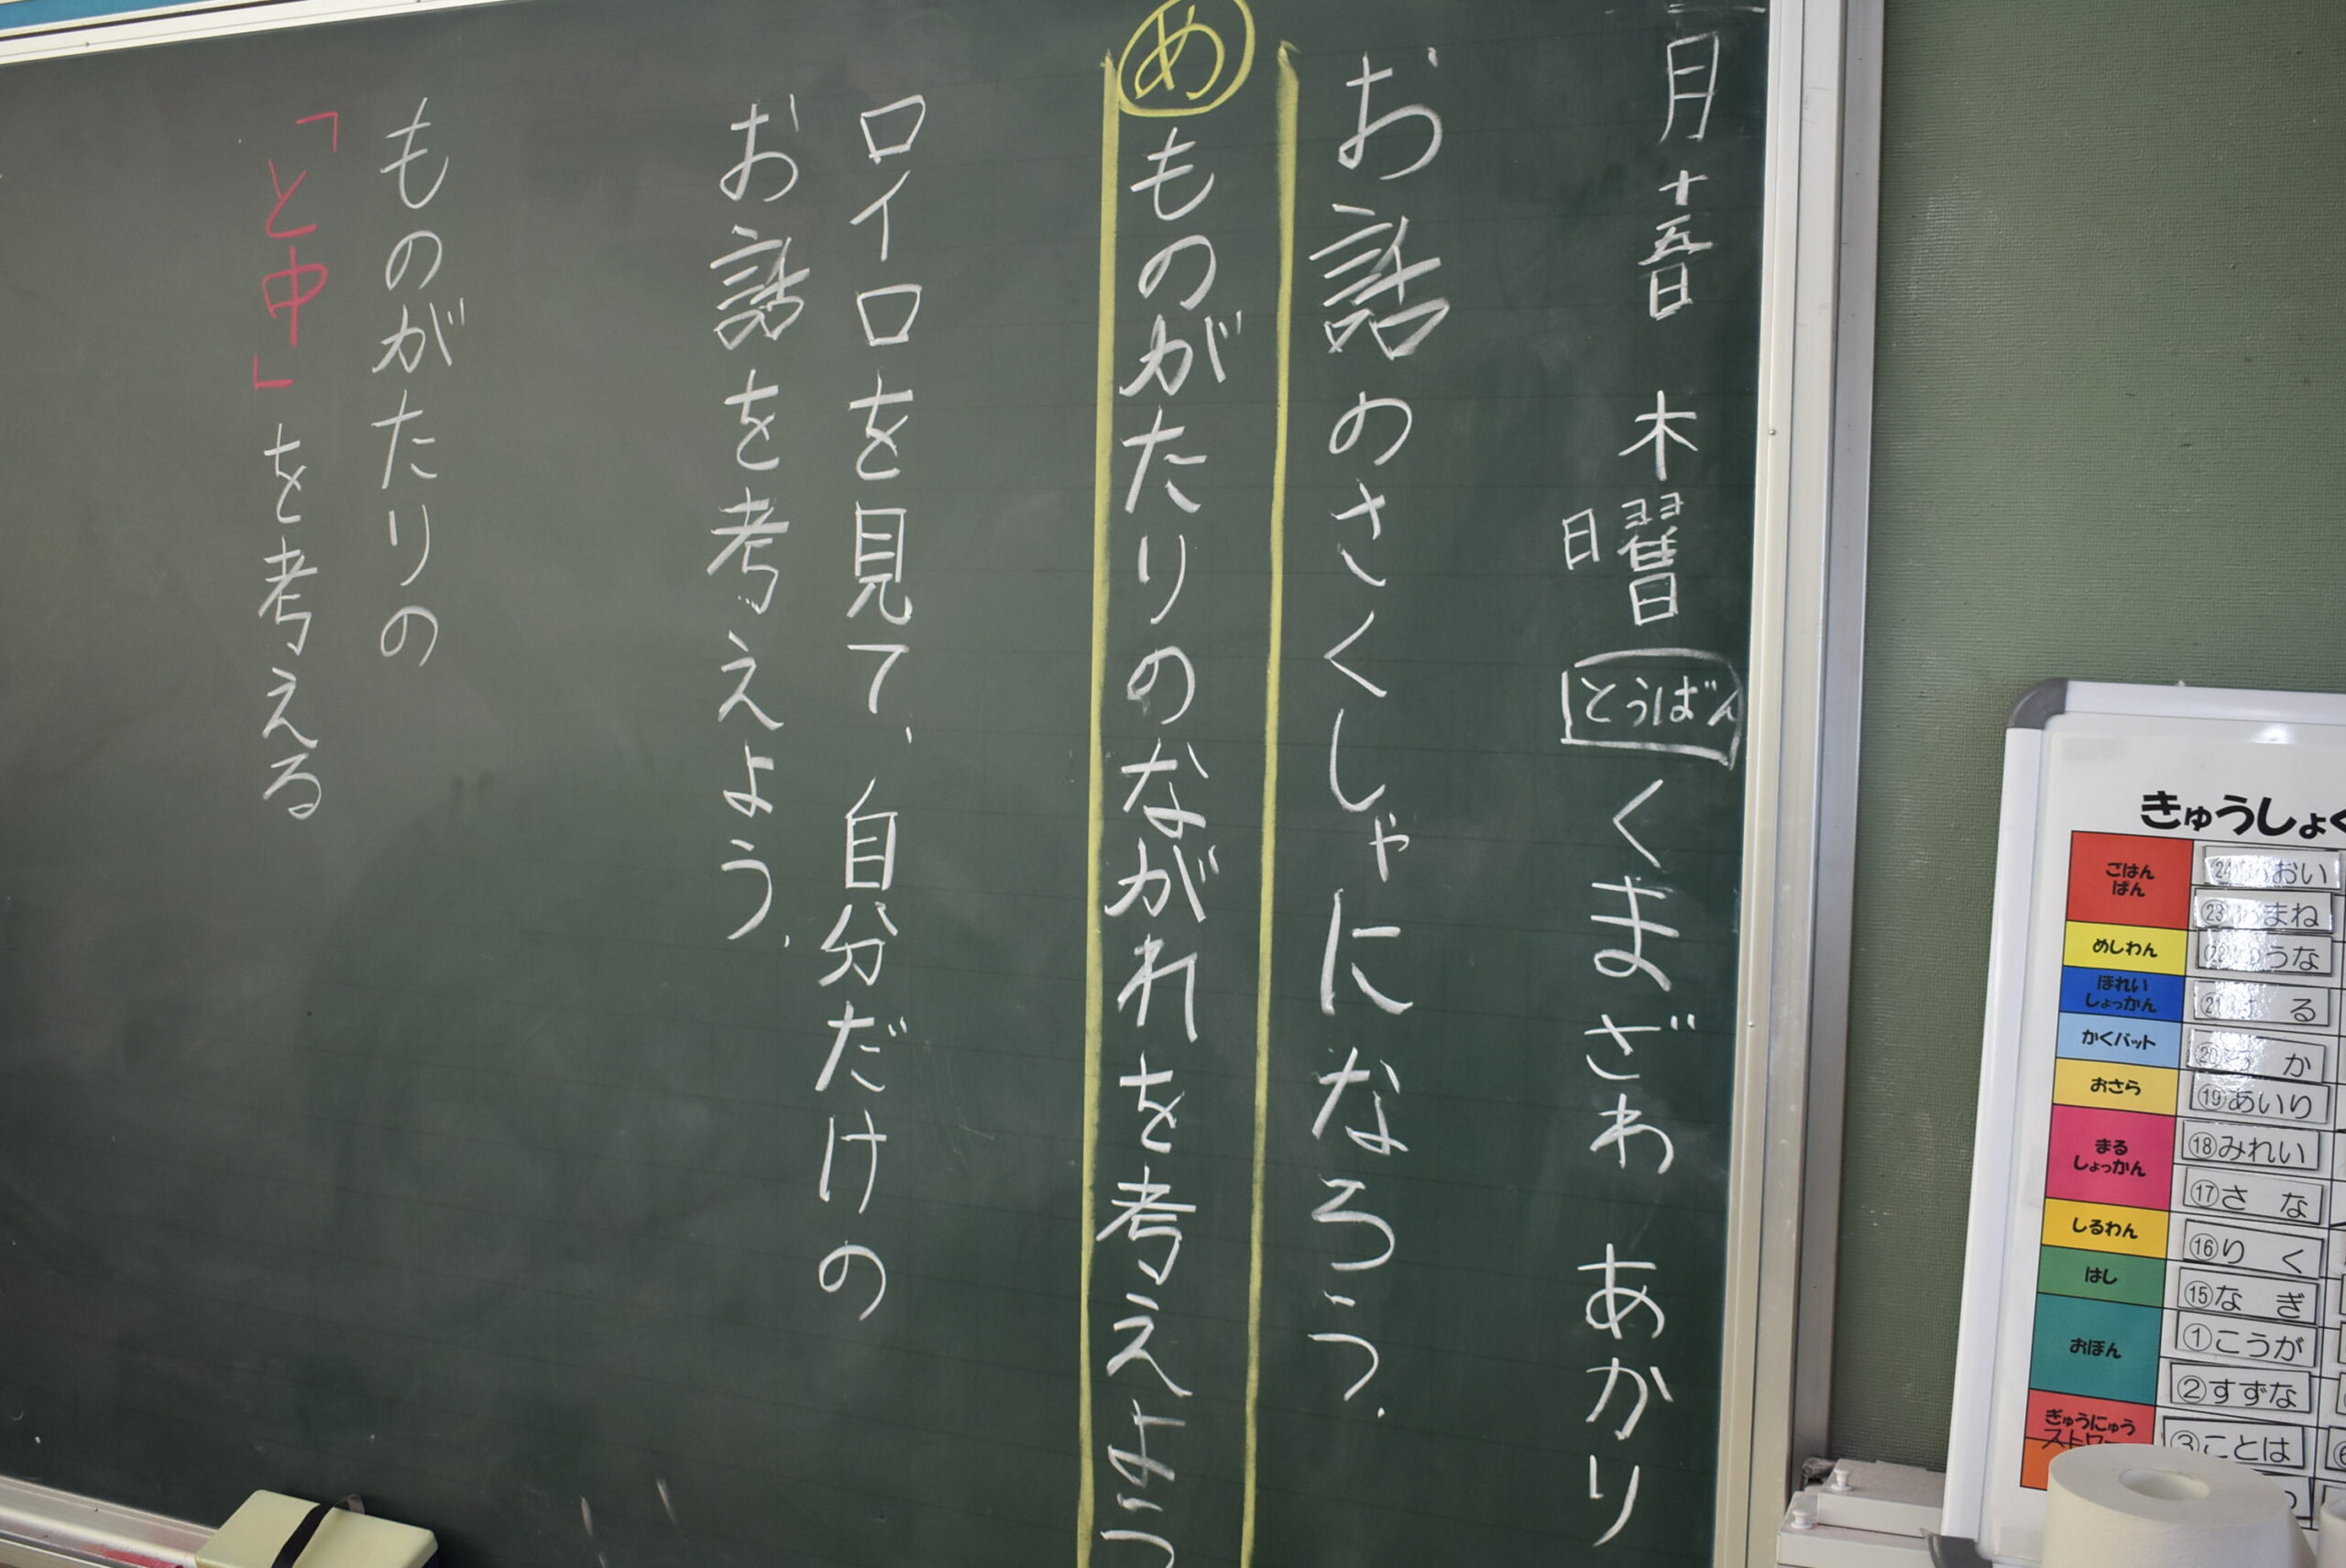 月十五日 木曜日 とうばん くまざわ あかり
お話のさくしゃになろう.
め ものがたりのながれを考えよう
ロイロを見て、自分だけの
お話を考えよう.
ものがたりの
「と中」を考える
きゅうしょく
ごはん
ぱん
おい
まね
めしわん
うな
ほれい
しょっかん
る
かくバット
か
おさら
⑲あいり
まる
しょっかん
⑱みれい
⑰さ な
しるわん
⑯り く
はし
⑮な ぎ
おぼん
①こうが
②すずな
ぎゅうにゅう
ストロー
③ことは